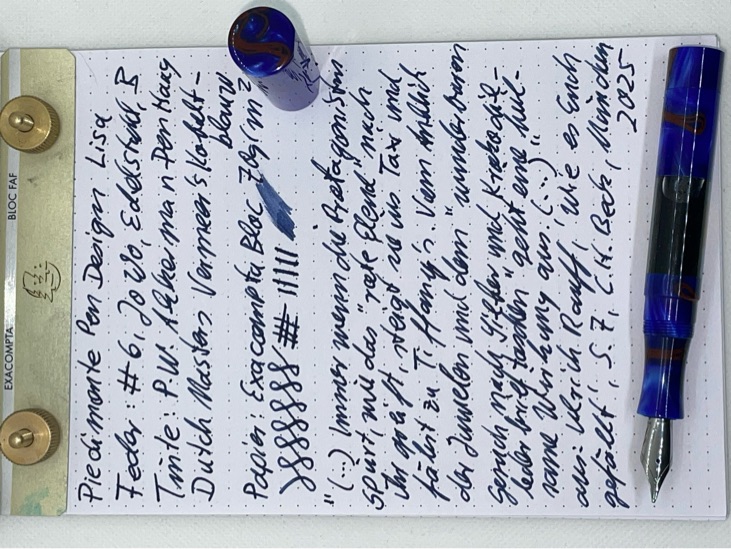 Piedimonte Pen Design Lisa
Feder: #6, JoWo, Edelstahl, B
Tinte: P.W. Akkerman Den Haag
Dutch Masters Vermeer's Kobalt-
blauw
Papier: Exacompta Bloc 70g/m2
"(...) Immer wenn die Protagonistin
spürt, wie das "rote Elend" nach
ihr greift, steigt sie ins Taxi und
fährt zu Tiffany's. Vom
der Juwelen und dem "wunderbaren
Geruch nach Silber und Krokodil-
ledertaschen" geht eine heil-
same Wirkung aus. (...)"
aus: Ulrich Raulff, Wie es euch
gefällt, S. 7, C.H. Beck, München
2025
EXACOMPTA
BLOC FAF